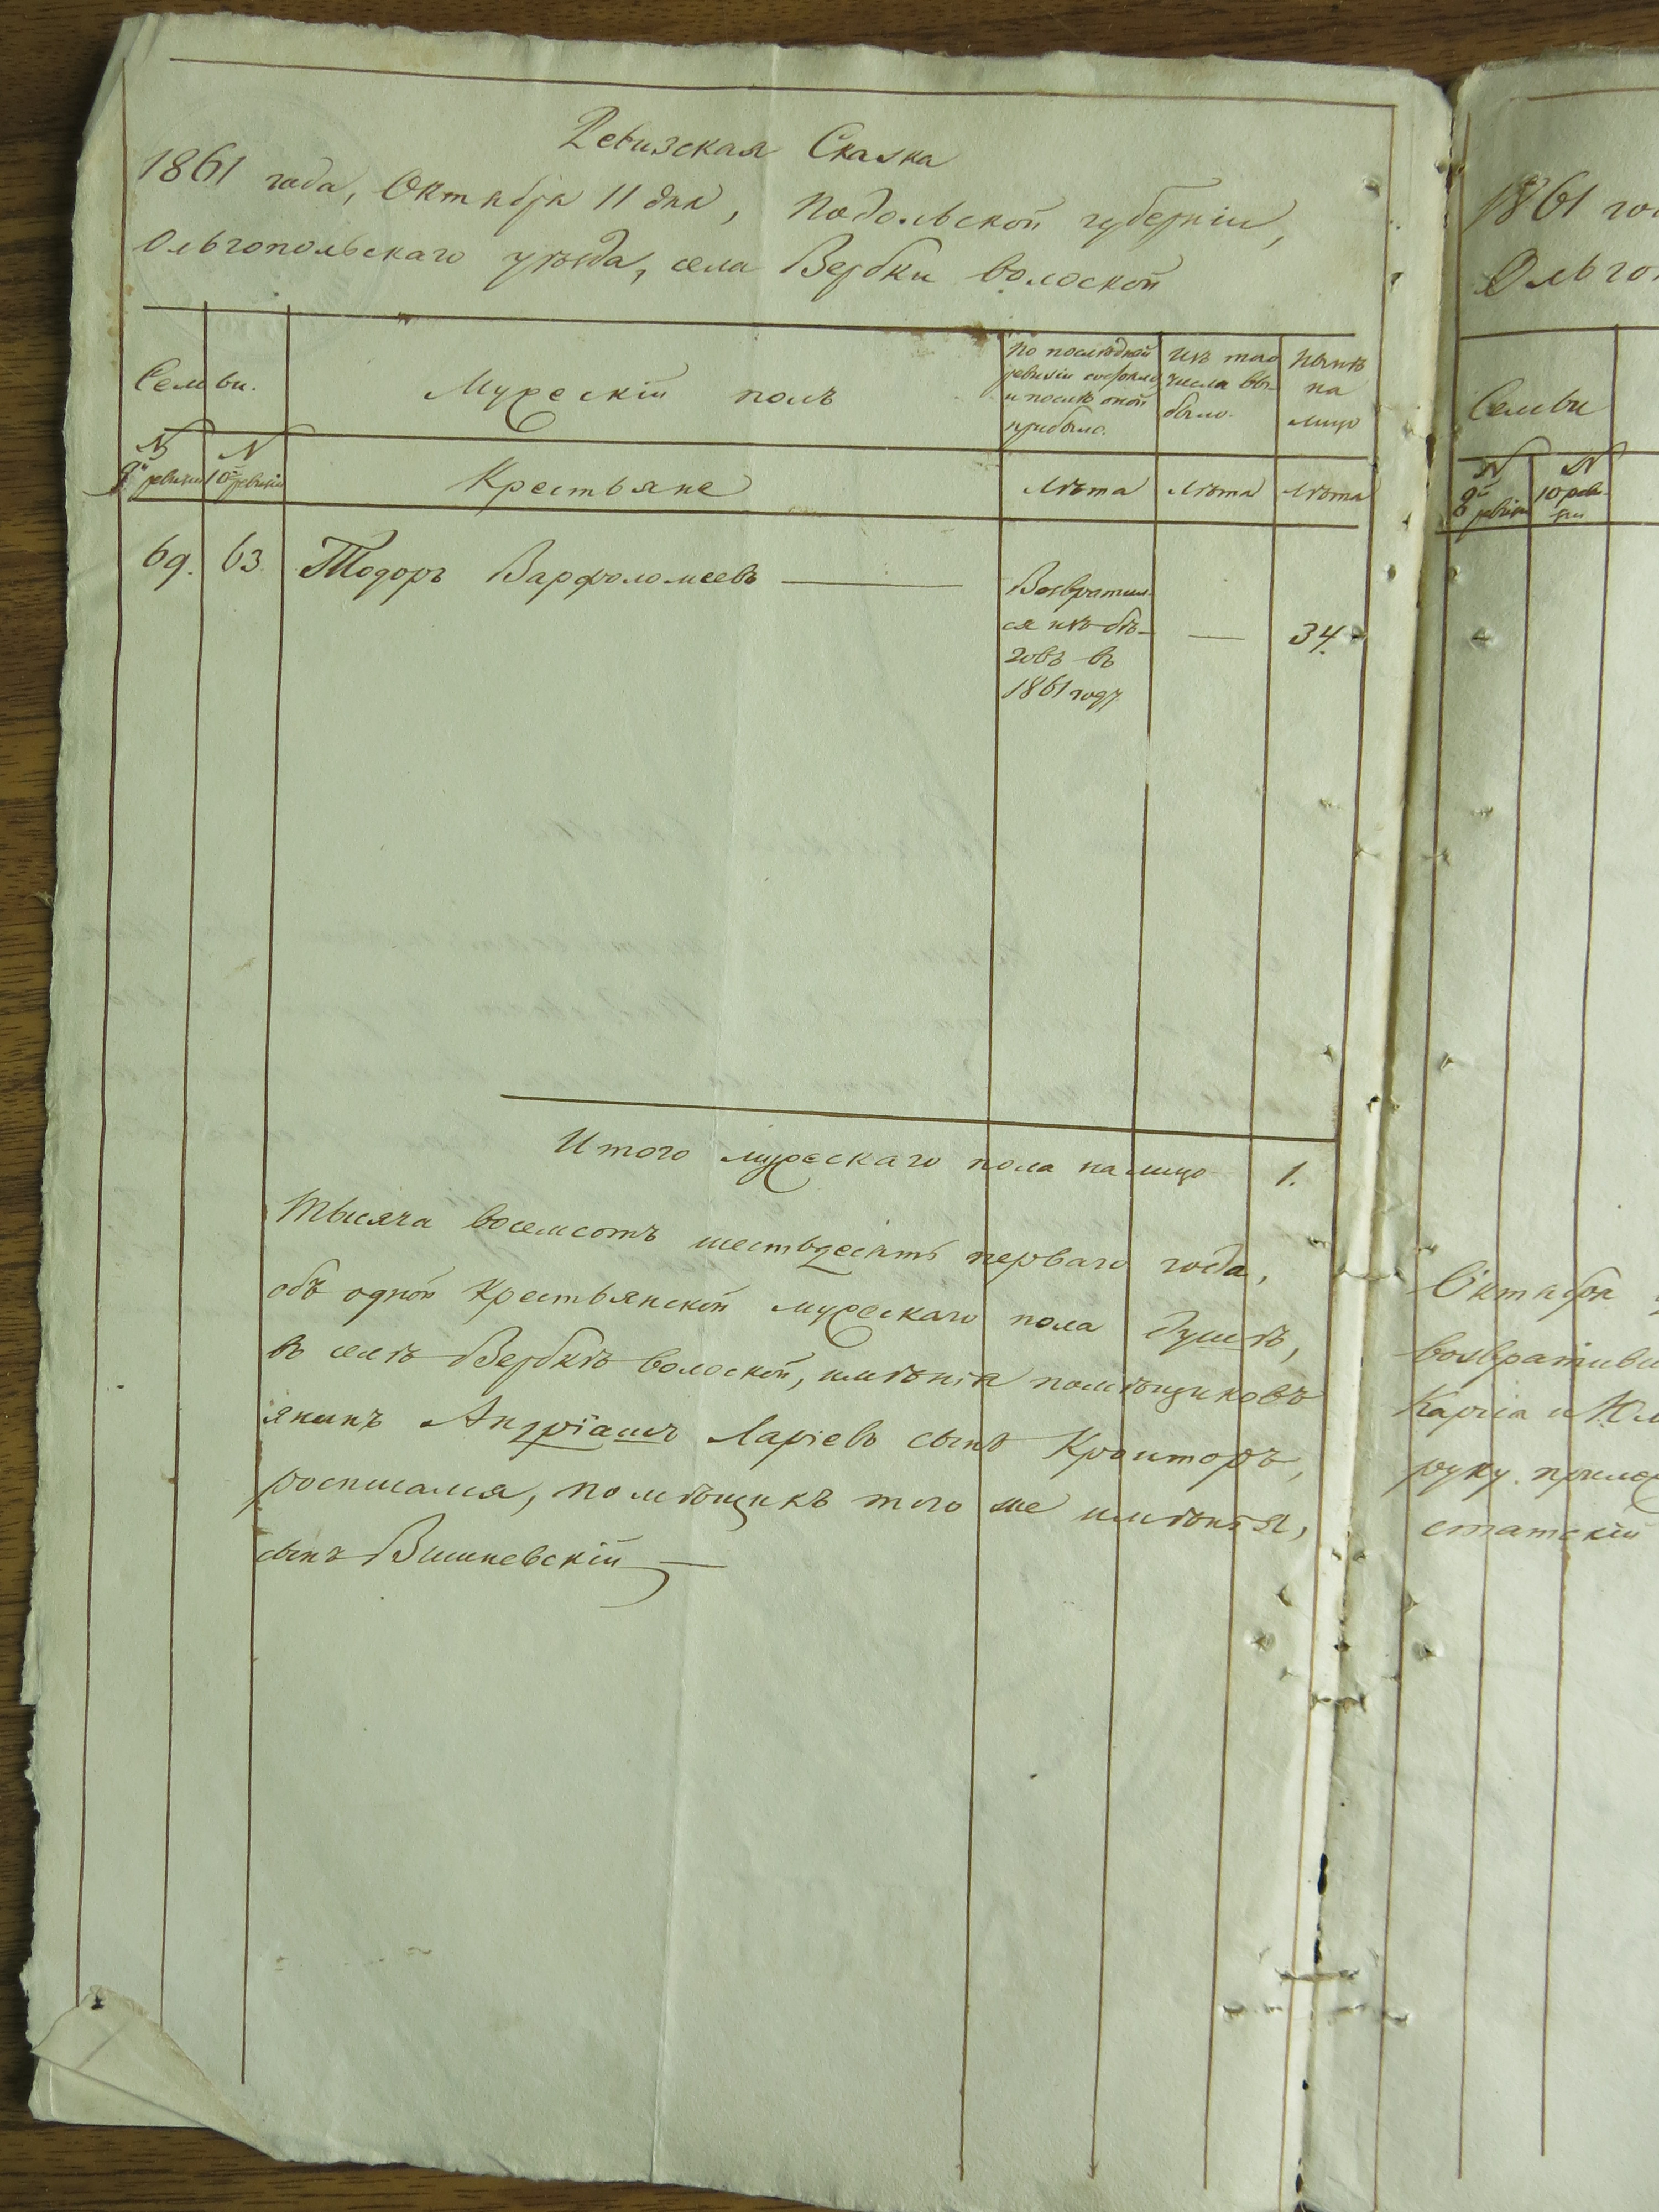 Ревизская Сказка
1861 года, Октября 11 дня, Подольской губерніи,
Ольгопольскаго уѣзда, села Вербки волоской
Семьи.
Мужескій полъ
По послѣдней
ревизіи состояло
и послѣ оной
прибыло.
Изъ того
числа вы-
было.
Нынѣ
на
лицо
№
9й ревизіи
№
10й ревизіи
Крестьяне
Лѣта
Лѣта
Лѣта
69.
63.
Тодоръ Варфоломеевъ
Возвратил-
ся изъ бѣ-
говъ въ
1861 году
34.
Итого мужескаго пола налицо 1.
Тысяча восемсотъ шестьдесятъ перваго года,
объ одной крестьянской мужескаго пола душѣ,
въ селѣ Вербкѣ волоской, имѣнія помѣщиковъ
янинъ Андріашъ Ларіевъ сынъ Кроиторъ,
росписался, помѣщикъ того же имѣнія,
сынъ Вишневскій
1861 го
Ольго
Семьи
№
9й
ревизіи
№
10 реви-
зіи
Октября
возвративши
Карла и Юл
руку прилож
статскій